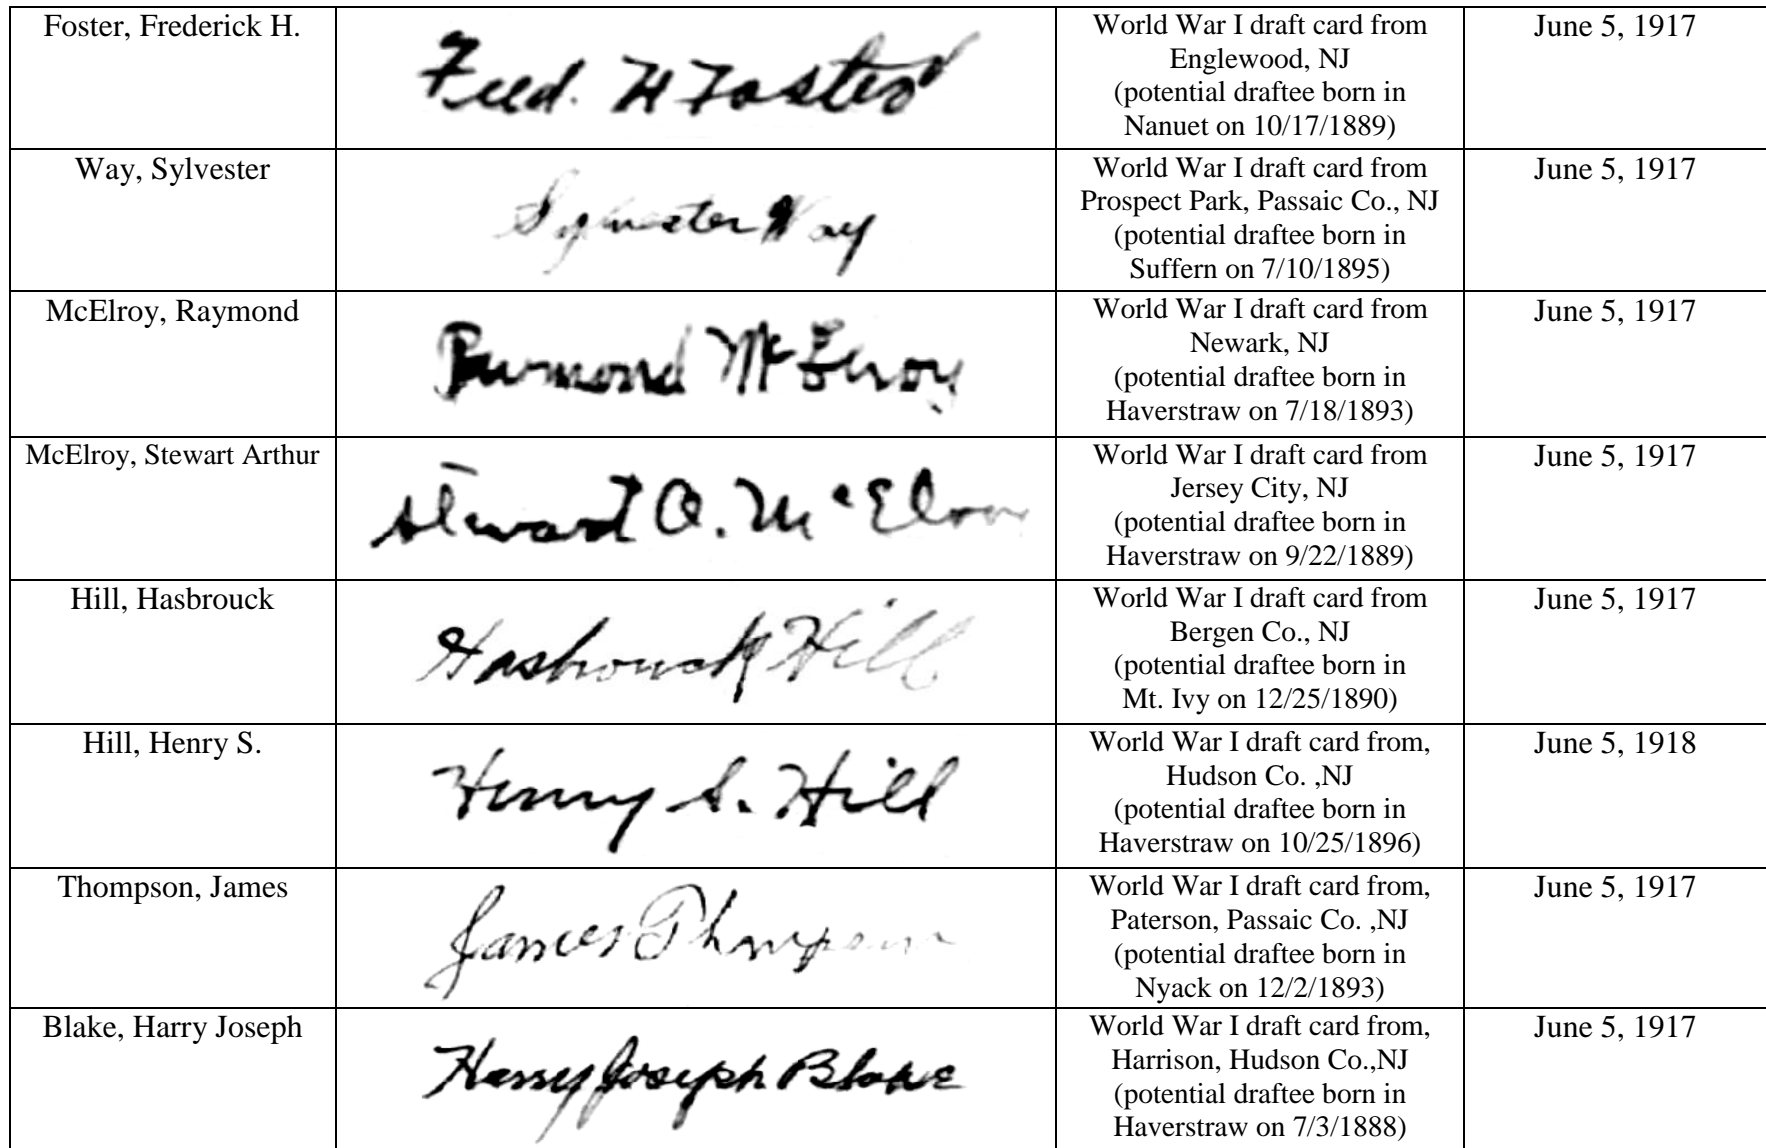 Foster, Frederick H.
Fred. H Foster
World War I draft card from
Englewood, NJ
(potential draftee born in
Nanuet on 10/17/1889)
June 5, 1917
Way, Sylvester
Sylvester Way
World War I draft card from
Prospect Park, Passaic Co., NJ
(potential draftee born in
Suffern on 7/10/1895)
June 5, 1917
McElroy, Raymond
Raymond McElroy
World War I draft card from
Newark, NJ
(potential draftee born in
Haverstraw on 7/18/1893)
June 5, 1917
McElroy, Stewart Arthur
Stewart A. McElroy
World War I draft card from
Jersey City, NJ
(potential draftee born in
Haverstraw on 9/22/1889)
June 5, 1917
Hill, Hasbrouck
Hasbrouck Hill
World War I draft card from
Bergen Co., NJ
(potential draftee born in
Mt. Ivy on 12/25/1890)
June 5, 1917
Hill, Henry S.
Henry S. Hill
World War I draft card from,
Hudson Co. ,NJ
(potential draftee born in
Haverstraw on 10/25/1896)
June 5, 1918
Thompson, James
James Thompson
World War I draft card from,
Paterson, Passaic Co. ,NJ
(potential draftee born in
Nyack on 12/2/1893)
June 5, 1917
Blake, Harry Joseph
Harry Joseph Blake
World War I draft card from,
Harrison, Hudson Co.,NJ
(potential draftee born in
Haverstraw on 7/3/1888)
June 5, 1917